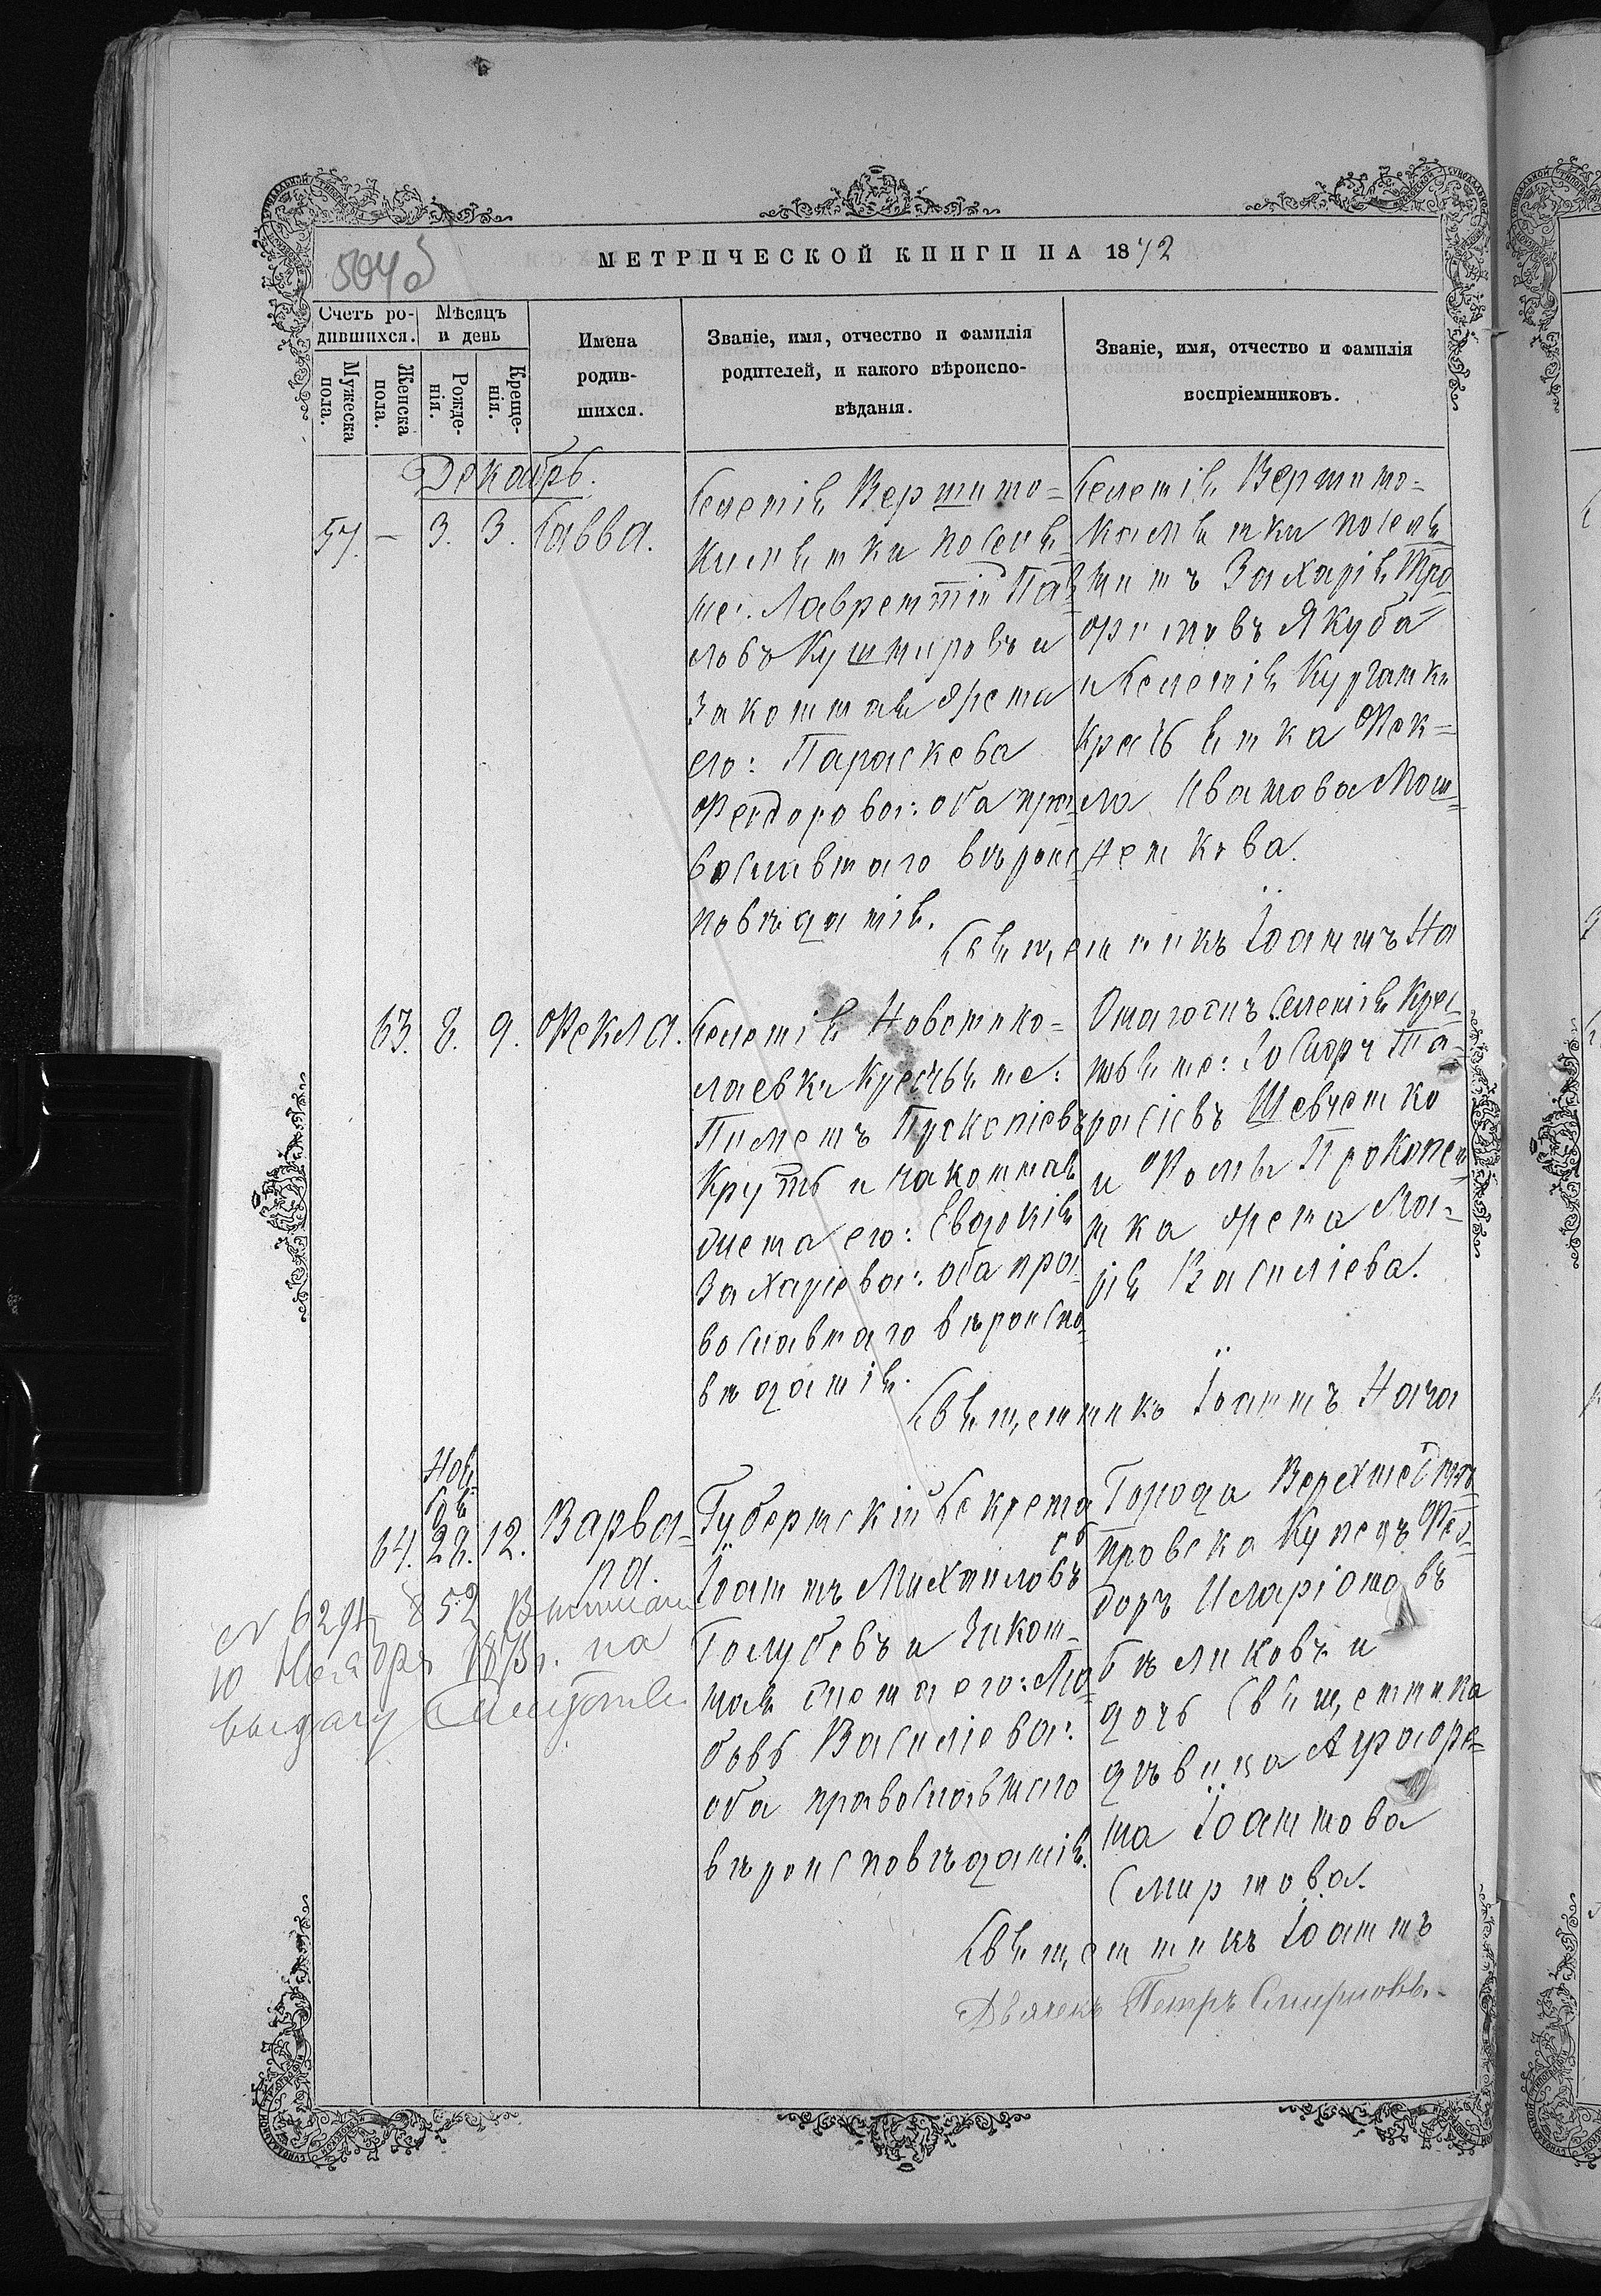 594 б
МЕТРИЧЕСКОЙ КНИГИ НА 1872
Счетъ ро-
дившихся.
Мѣсяцъ
и день
Мужеска
пола.
Женска
пола.
Рожде-
нія.
Креще-
нія.
Имена
родив-
шихся.
Званіе, имя, отчество и фамилія
родителей, и какого вѣроиспо-
вѣданія.
Званіе, имя, отчество и фамилія
воспріемниковъ.
Декабрь.
57. – 3. 3. Савва.
Селенія Вершино-
каменки поселя-
не: Лаврентій Пав-
ловъ Кушнировъ и
законная жена
его: Параскева
Феодорова: оба пра-
вославнаго вѣроис-
повѣданія.
Селенія Вершино-
каменки поселя-
нинъ Захарія Тро-
фимовъ Якуба
и Селенія Курчанки
крестьянка Фек-
ла Иванова Мош-
ненкова.
Священникъ Іоаннъ На
63. 8. 9. Фекла.
Селенія Новонико-
лаевки крестьяне:
Пименъ Прокопіевъ
Круть и законная
жена его: Евдокія
Захаріева: оба пра-
вославнаго вѣроиспо-
вѣданія.
Онагожъ Селенія Крес-
тьяне: Ісидоръ Та-
расіевъ Шевченко
и Фомы Прокопен-
нка жена Ма-
рія Василіева.
Священникъ Іоаннъ Нача
Ноя
бря
64. 28. 12. Варва-
ра.
Губернскій Секрета
рь
Іоаннъ Михаиловъ
Голубевъ и закон-
ная жена его: Лю-
бовь Василіева:
оба православнаго
вѣроисповѣданія.
Города Верхнеднѣ-
провска Купецъ Фео-
доръ Иларіоновъ
Бѣликовъ и
дочь Священника
дѣвица Аграфе-
на Іоаннова
Смирнова.
№ 6294 852 Выписан
10 Ноября 187 г. на
выдачу
Священникъ Іоаннъ
Дьячекъ Петръ Смирновъ.